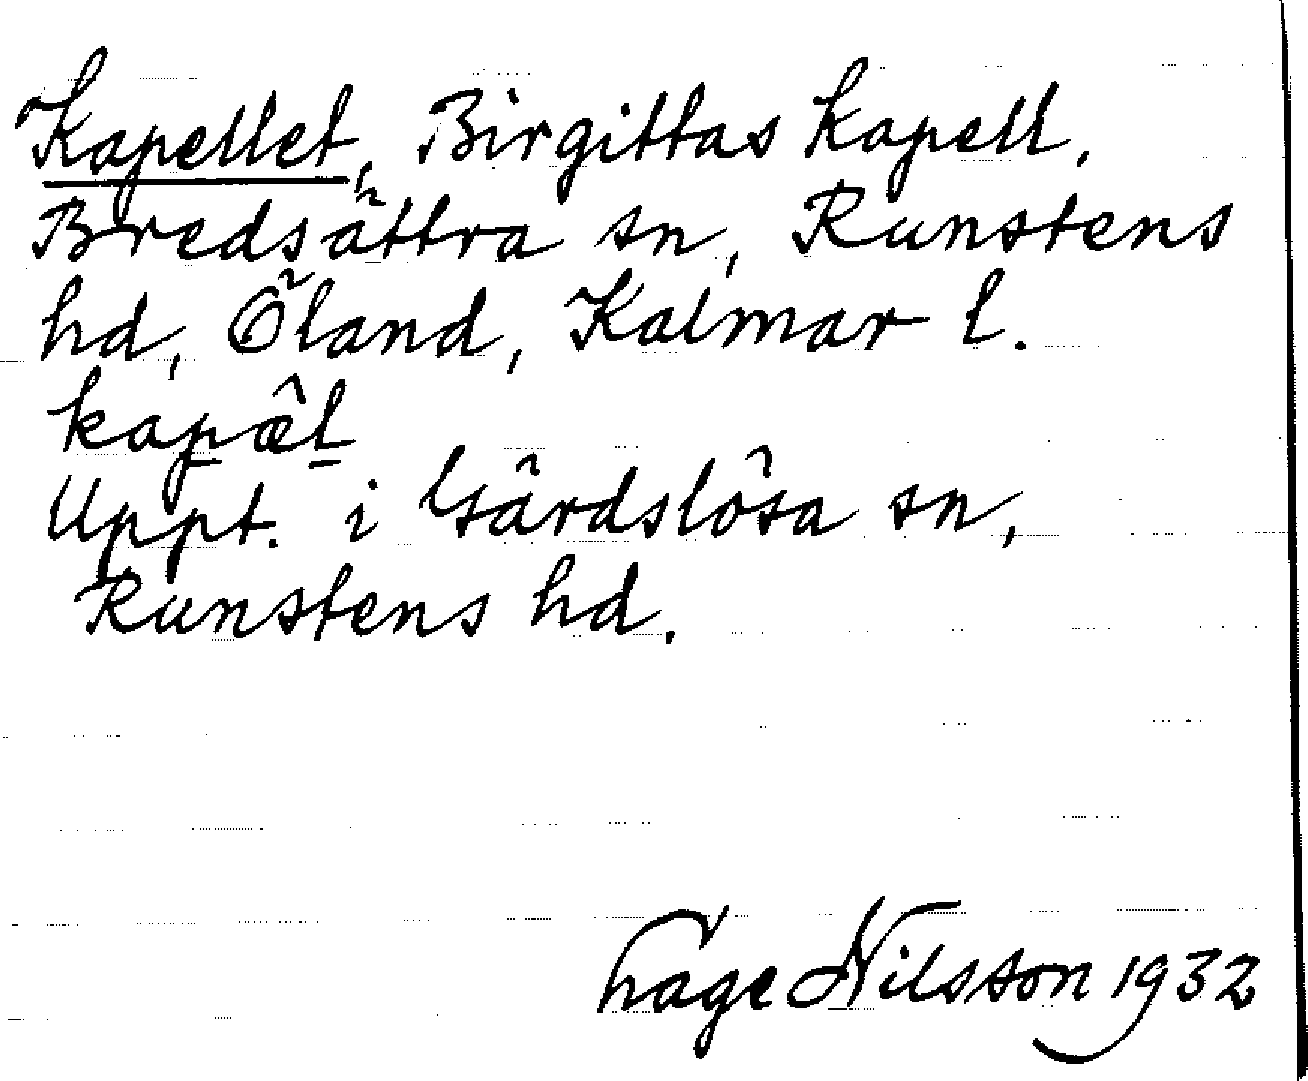 Kapellet, Birgittas kapell,
Bredsättra sn, Runstens
hd, Öland, Kalmar l.
kapæ̂l
Uppt. i Gärdslösa sn,
Runstens hd.
Hage Nilsson 1932